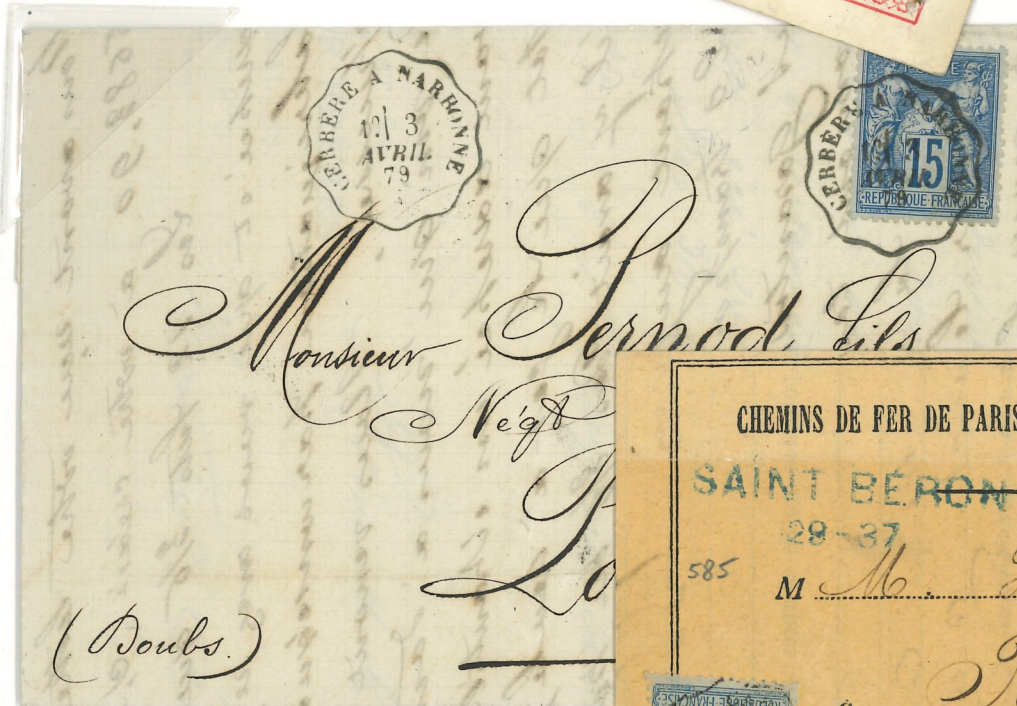 CERBÈRE A NARBONNE
3
AVRIL
79
CERBÈRE A NARBONNE
15
REPUBLIQUE FRANÇAISE
Monsieur Pernod fils
Négt
(Doubs)
CHEMINS DE FER DE PARIS
SAINT BÉRON
29-37
585
M M.